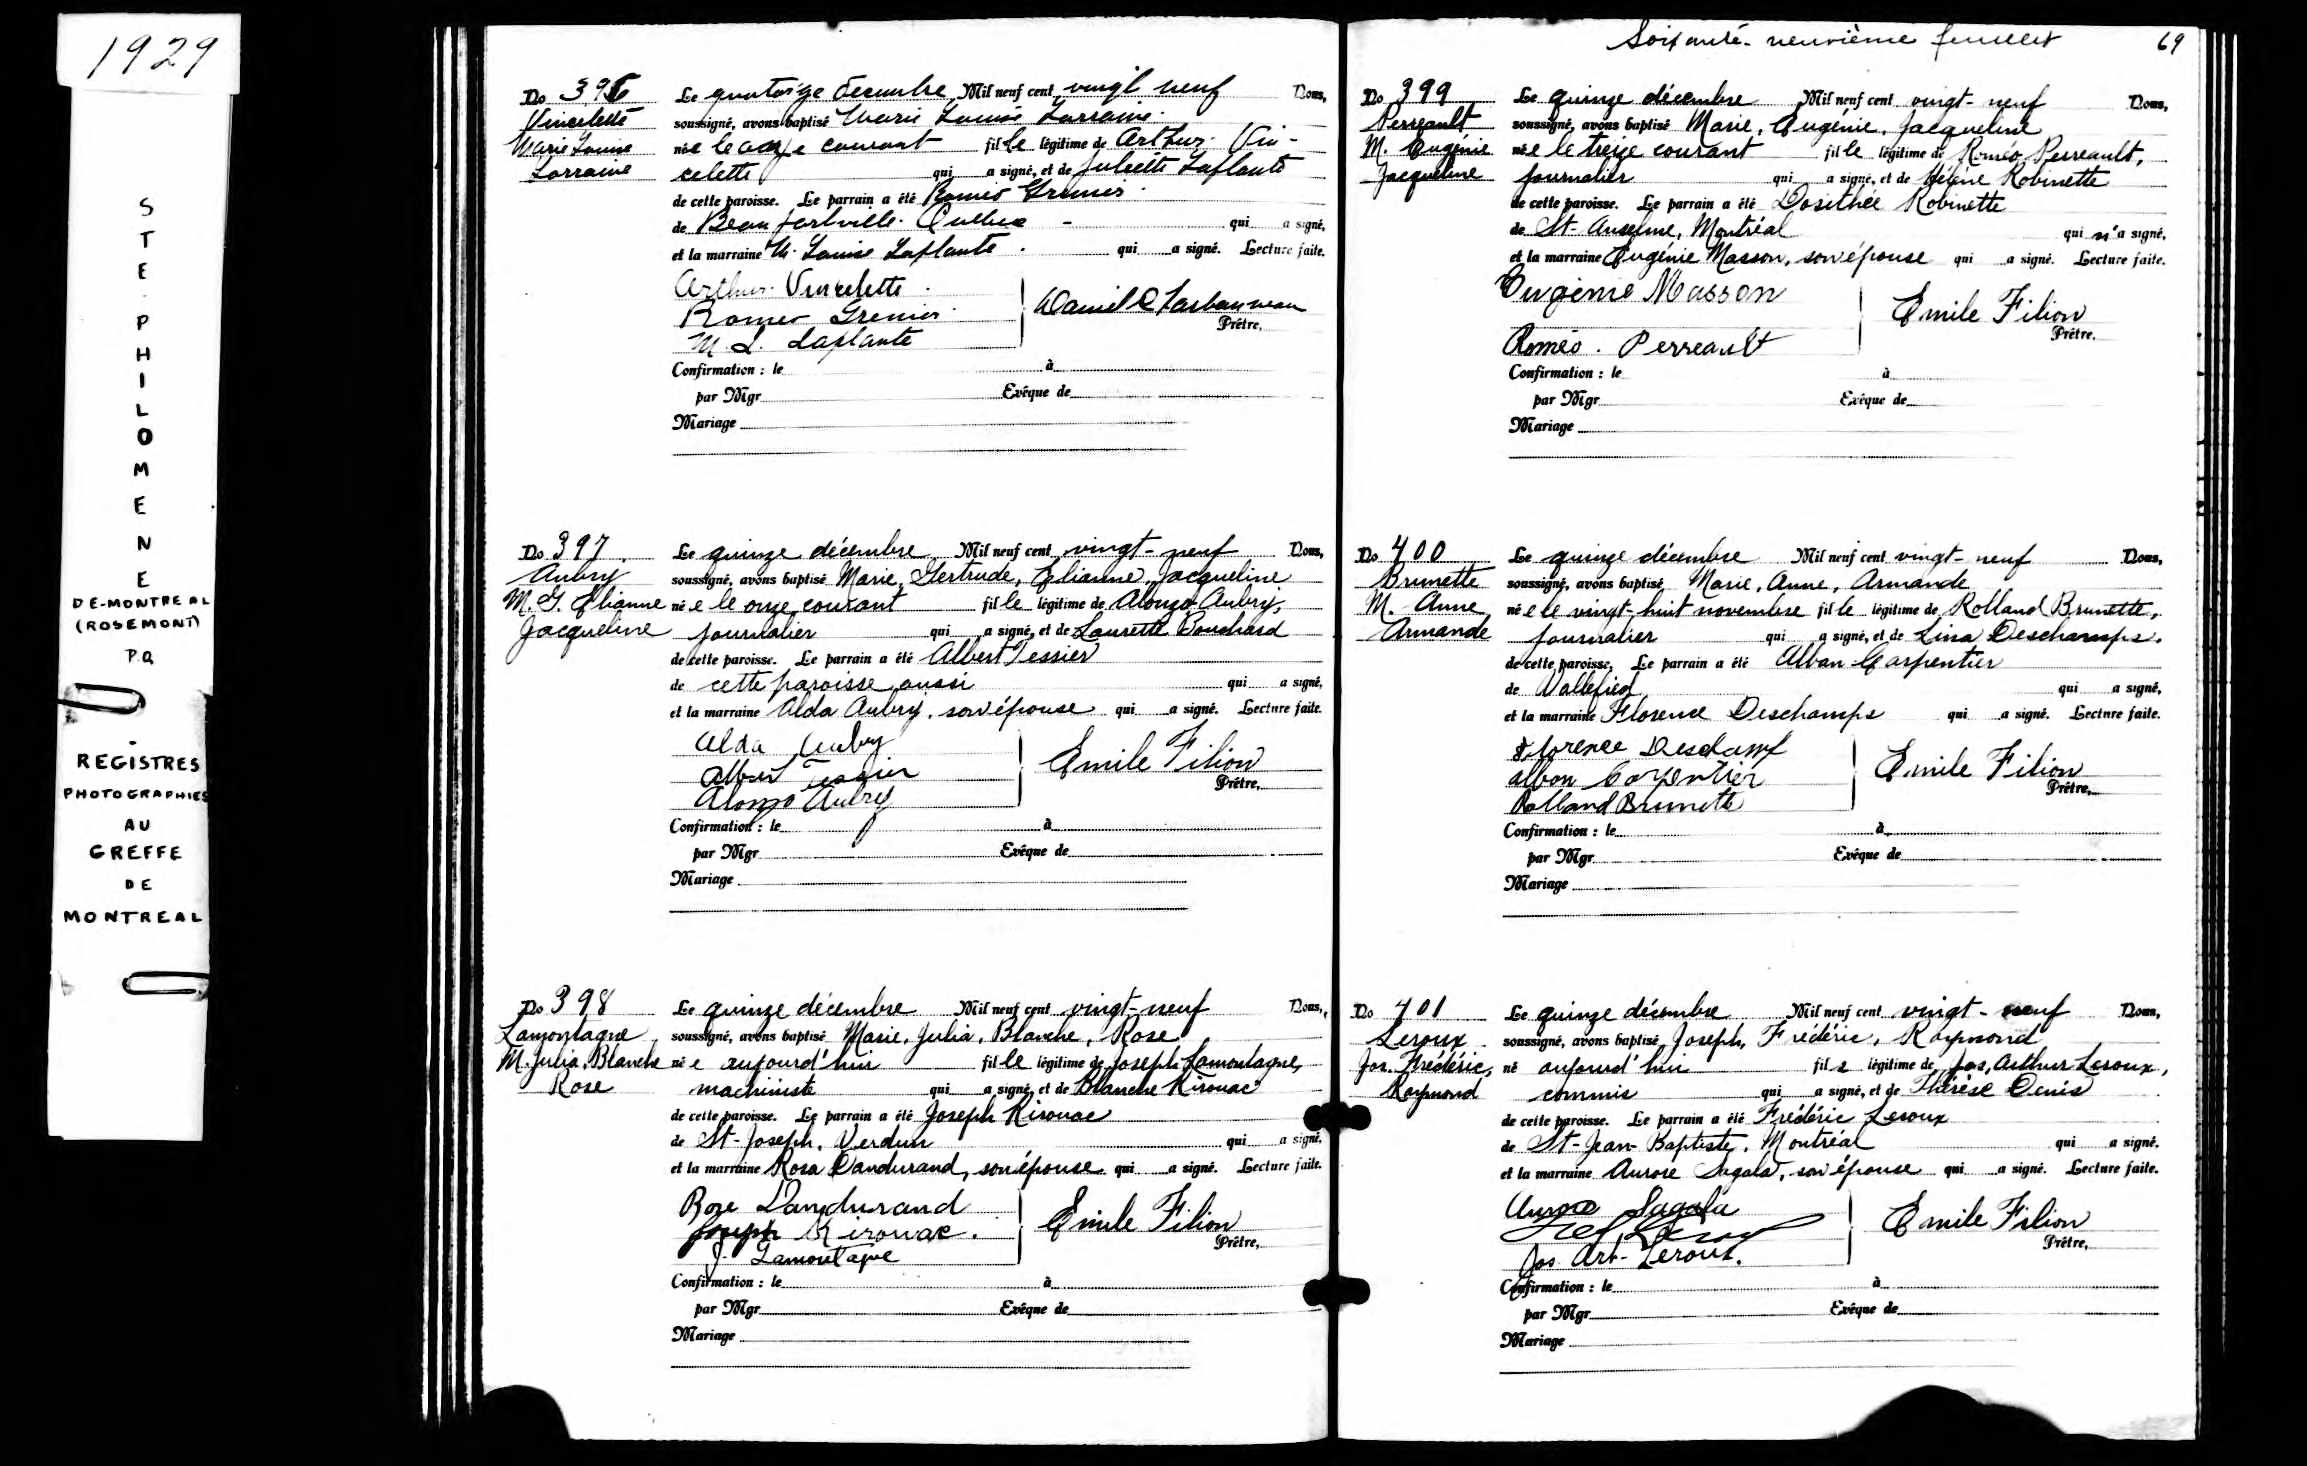 1929
STE-PHILOMENE
DE-MONTREAL
(ROSEMONT)
P.Q.
REGISTRES
PHOTOGRAPHIES
AU
GREFFE
DE
MONTREAL
No 396
Vincelette
Marie Louise
Lorraine
Le quatorze décembre Mil neuf cent vingt neuf Nous,
soussigné, avons baptisé Marie Louise Lorraine
née le onze courant fille légitime de Arthur Vin-
celette qui a signé, et de Juliette Laplante
de cette paroisse. Le parrain a été Romeo Grenier
de Québec - qui a signé,
et la marraine M. Louise Laplante. qui a signé. Lecture faite.
Arthur Vincelette
Romeo Grenier
M. L. Laplante
Daniel Charbonneau
Prêtre.
Confirmation : le à
par Mgr Evêque de
Mariage
No 397
Aubry
M. G. Elianne
Jacqueline
Le quinze décembre Mil neuf cent vingt-neuf Nous,
soussigné, avons baptisé Marie, Gertrude, Elianne, Jacqueline
née le onze courant fille légitime de Alonzo Aubry,
journalier qui a signé, et de Laurette Bouchard
de cette paroisse. Le parrain a été Albert Tessier
de cette paroisse aussi qui a signé,
et la marraine Alda Aubry, son épouse qui a signé. Lecture faite.
Alda Aubry
Albert Tessier
Alonzo Aubry
Emile Filion
Prêtre.
Confirmation : le à
par Mgr Evêque de
Mariage
No 398
Lamontagne
M. Julia, Blanche
Rose
Le quinze décembre Mil neuf cent vingt-neuf Nous,
soussigné, avons baptisé Marie, Julia, Blanche, Rose
née aujourd'hui fille légitime de Joseph Lamontagne,
machiniste qui a signé, et de Blanche Kirouac
de cette paroisse. Le parrain a été Joseph Kirouac
de St-Joseph, Verdun qui a signé,
et la marraine Rosa Dandurand, son épouse qui a signé. Lecture faite.
Rose Dandurand
Joseph Kirouac.
J. Lamontagne
Emile Filion
Prêtre.
Confirmation : le à
par Mgr Evêque de
Mariage
Soixante-neuvième feuillet 69
No 399
Perreault
M. Eugénie
Jacqueline
Le quinze décembre Mil neuf cent vingt-neuf Nous,
soussigné, avons baptisé Marie, Eugénie, Jacqueline
née le treize courant fille légitime de Roméo Perreault,
journalier qui a signé, et de Hélène Robinette
de cette paroisse. Le parrain a été Dosithée Robinette
de St-Anselme, Montréal qui n'a signé,
et la marraine Eugénie Masson, son épouse qui a signé. Lecture faite.
Eugénie Masson
Roméo. Perreault
Emile Filion
Prêtre.
Confirmation : le à
par Mgr Evêque de
Mariage
No 400
Brunette
M. Anne
Armande
Le quinze décembre Mil neuf cent vingt-neuf Nous,
soussigné, avons baptisé Marie, Anne, Armande
née le vingt-huit novembre fille légitime de Rolland Brunette,
journalier qui a signé, et de Lina Deschamps.
de cette paroisse. Le parrain a été Alban Carpentier
de Vallefield qui a signé,
et la marraine Florence Deschamps qui a signé. Lecture faite.
Florence Deschamp
albon Carpentier
Rolland Brunette
Emile Filion
Prêtre.
Confirmation : le à
par Mgr Evêque de
Mariage
No 401
Leroux
Jos. Frédéric,
Raymond
Le quinze décembre Mil neuf cent vingt-neuf Nous,
soussigné, avons baptisé Joseph, Frédéric, Raymond
né aujourd'hui fils légitime de Jos. Arthur Leroux,
commis qui a signé, et de Thérèse Denis
de cette paroisse. Le parrain a été Frédéric Leroux
de St-Jean-Baptiste, Montréal qui a signé.
et la marraine Aurore Lagala, son épouse qui a signé. Lecture faite.
Aurore Lagala
Jos Art-Leroux.
Emile Filion
Prêtre.
Confirmation : le à
par Mgr Evêque de
Mariage